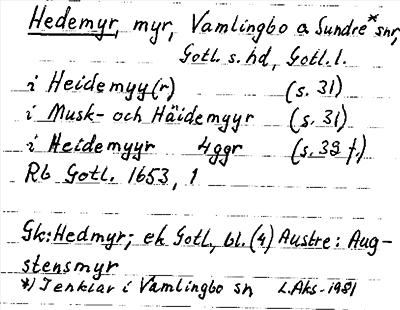 Hedemyr, myr, Vamlingbo o Sundre* snr,
Gotl. s. hd, Gotl. l.
i Heidemyy(r) (s. 31)
i Musk- och Häidemyyr (s. 31)
i Heidemyyr 4 ggr (s. 39 f.)
Rb Gotl. 1653, 1
Gk: Hedmyr; ek Gotl., bl. (4) Austre: Aug-
stensmyr
*) Tenklar i Vamlingbo sn L.Aks-1981